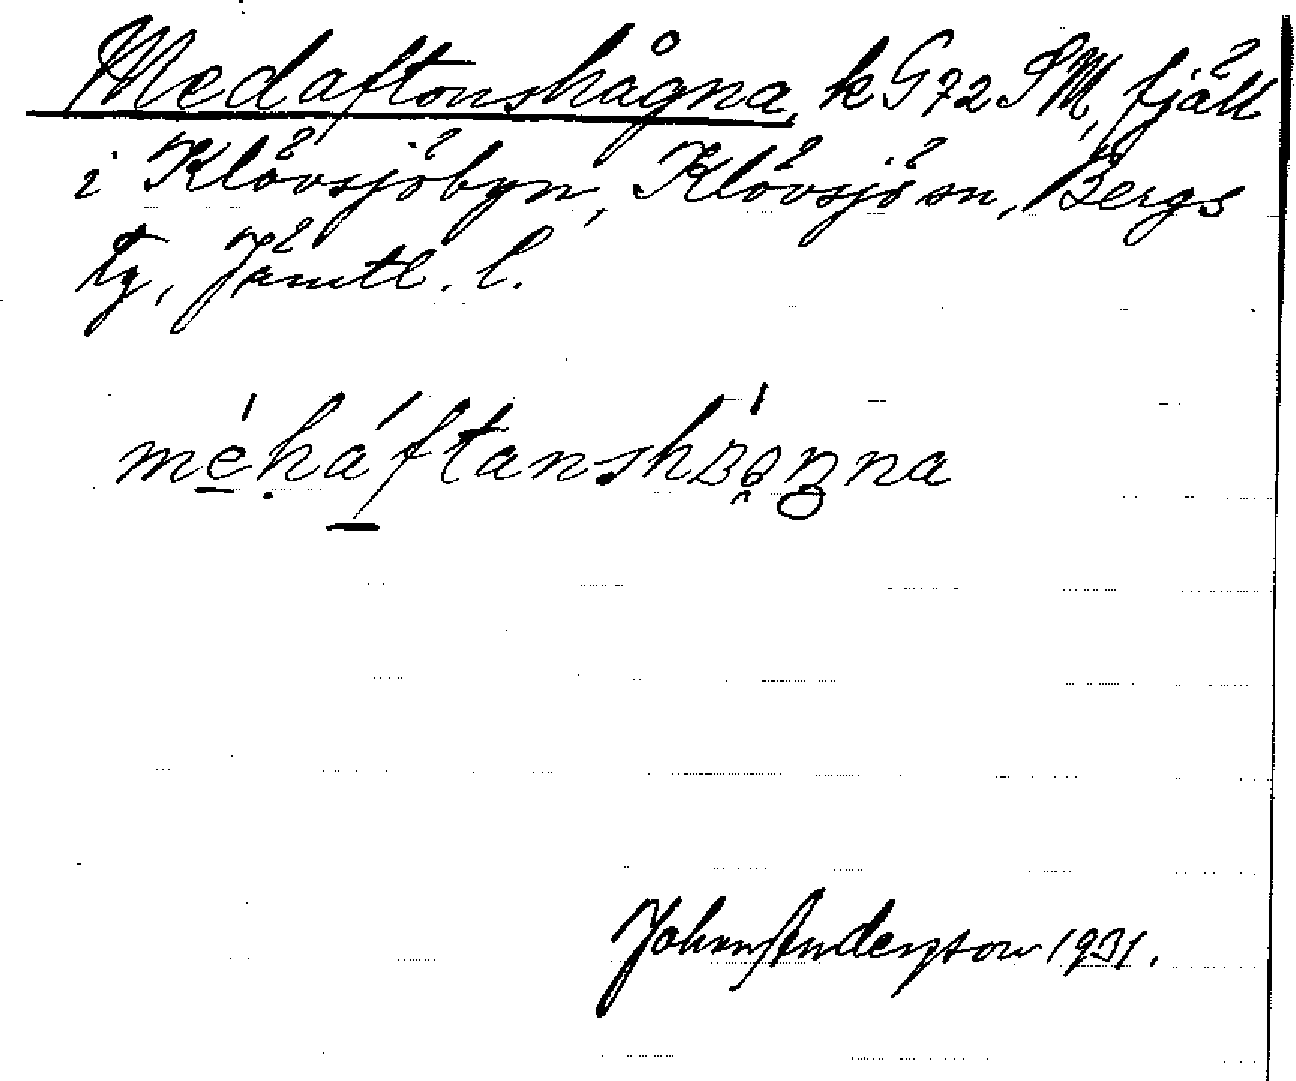 Medaftonshågna, k G72 SM, fjäll
i Klövsjöbyn, Klövsjö sn, Bergs
tg, Jämtl. l.
John Anderson 1931.